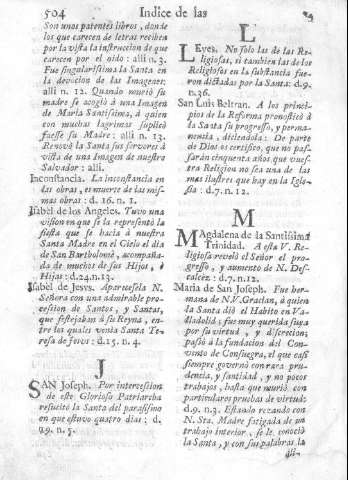 504 Indice de las
Son unos patentes libros, donde
los que carecen de letras reciben
por la vista la instruccion de que
carecen por el oìdo: alli n.3.
Fue singularissima la Santa en
la devocion de las Imagenes:
alli n. 12. Quando muriò su
madre se acogiò à una Imagen
de Maria Santissima, à quien
con muchas lagrimas suplicò
fuesse su Madre: alli n. 13.
Renovò la Santa sus fervores à
vista de una Imagen de nuestro
Salvador: alli.
Inconstancia. La inconstancia en
las obras, es muerte de las mis-
mas obras: d. 16. n. 1.
Isabel de los Angeles. Tuvo una
vision en que se la representò la
fiesta que se hacia à nuestra
Santa Madre en el Cielo el dia
de San Bartholomè, acompaña-
da de muchos de sus Hijos, è
Hijas: d.24.n.13.
Isabel de Jesvs. Apareesela N.
Señora con una admirable pro-
cesion de Santos, y Santas,
que festejaban à su Reyna, en-
tre los quales venìa Santa Te-
resa de Jesus: d.15. n. 4.
J
SAN Joseph. Por intercession
de este Glorioso Patriarcha
resucitò la Santa del parasismo
en que estuvo quatro dias: d.
19. n. 5.
L
LEyes. No solo las de las Re-
ligiosas, si tambien las de los
Religiosos en la substancia fue-
ron dictadas por la Santa: d.9.
n.36.
San Luis Beltran. A los princi-
pios de la Reforma pronosticò à
la Santa su progresso, y perma-
nencia, diciendola: De parte
de Dios os certifico, que no pas-
saràn cinquenta años que vues-
tra Religion no sea una de las
mas ilustres que hay en la Igle-
sia: d.7. n.12.
M
MAgdalena de la Santissima
Trinidad. A esta V. Re-
ligiosa revelò el Señor el pro-
gresso, y aumento de N. Des-
calcèz: d.7.n.12.
Maria de San Joseph. Fue her-
mana de N.V.Gracian, à quien
la Santa diò el Habito en Va-
lladolid: fue muy querida suya
por su virtud, y discrecion:
passò à la fundacion del Con-
vento de Consuegra, el que casi
siempre governò con rara pru-
dencia, y santidad, y no pocos
trabajos, hasta que muriò con
particulares pruebas de virtud:
d.9. n.3. Estando rezando con
N. Sta. Madre fatigada de un
trabajo interior, se le conociò
la Santa, y con sus palabras la
ali-